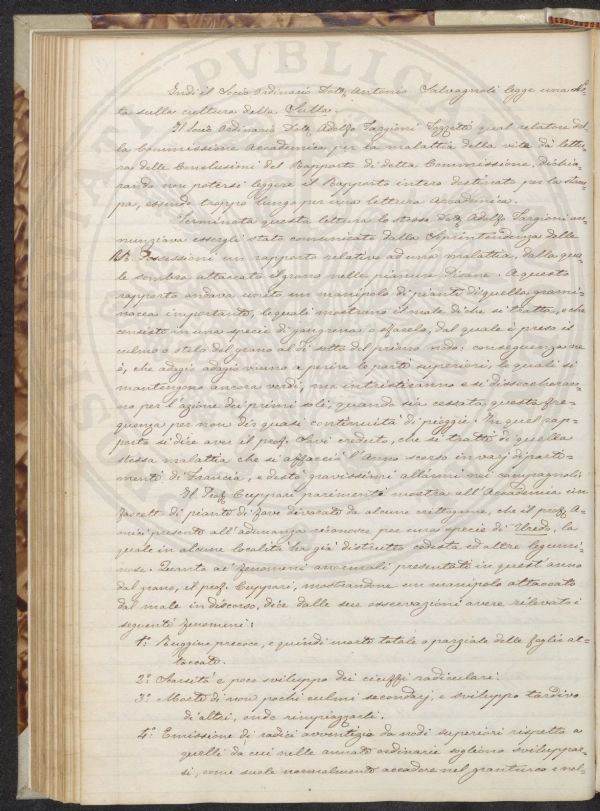 Indi il Socio Ordinario Dott. Antonio Salvagnoli legge una No-
ta sulla cultura della Sulla.
Il Socio Ordinario Dott. Adolfo Targioni Tozzetti qual relatore del-
la Commissione Accademica per la malattia della vite dà lettu-
ra delle Conclusioni del Rapporto di detta Commissione, dichia-
rando non potersi leggere il Rapporto intero destinato per la stam-
pa, essendo troppo lungo per una lettura Accademica.
Terminata questa lettura lo stesso Dott. Adolfo Targioni an-
nunziava essergli stato comunicato dalla Soprintendenza delle
RR. Possessioni un rapporto relativo ad una malattia, dalla qua-
le sembra attaccato il grano nelle pianure Pisane. A questo
rapporto andava unito un manipolo di piante di quella grami-
nacea importante, le quali mostrano il male di che si tratta, e che
consiste in una specie di gangrena o sfacelo, dal quale è preso il
culmo o stelo del grano al di sotto del primo nodo: conseguenza ne
è, che adagio adagio vanno a perire le parti superiori, le quali si
mantengono ancora verdi, ma intristiranno e si disseccheran-
no per l'azione dei primi soli, quando sia cessata questa fre-
quenza per non dir quasi continuità di pioggie. In quel rap-
porto si dice aver il prof. Savi creduto, che si tratti di quella
stessa malattia che si affacciò l'Anno scorso in varj diparti-
menti di Francia, e destò gravissimi allarmi nei campagnoli.
Il Prof. Cuppari parimente mostra all'Accademia un
fascetto di piante di fave devastate da alcune crittogame, che il prof. A-
mici presente all'adunanza riconosce per una specie di Uredo, la
quale in alcune località ha già distrutto codesta ed altre legumi-
nose. Quanto ai fenomeni anormali presentati in quest'anno
dal grano, il prof. Cuppari, mostrandone un manipolo attaccato
dal male in discorso, dice dalle sue osservazioni avere rilevato i
seguenti fenomeni:
1.° Ruggine precoce, e quindi morte totale o parziale delle foglie at-
taccate.
2.° Scarsità e poco sviluppo dei ciuffi radicolari:
3.° Morte di non pochi culmi secondarj, e sviluppo tardivo
di altri, onde rimpiazzarli.
4.° Emissione di radici avventizie da nodi superiori rispetto a
quelli da cui nelle annate ordinarie sogliono sviluppar-
si, come suole normalmente accadere nel granturco e nel-